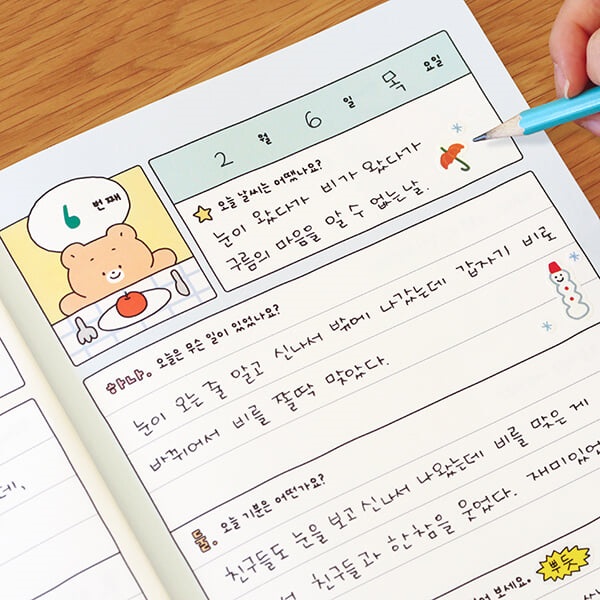 2 월 6 일 목 요일
6 번째
오늘 날씨는 어땠나요?
눈이 왔다가 비가 왔다가
구름의 마음을 알 수 없는 날.
하나. 오늘은 무슨 일이 있었나요?
눈이 오는 줄 알고 신나서 밖에 나갔는데 갑자기 비로
바뀌어서 비를 쫄딱 맞았다.
둘. 오늘 기분은 어떤가요?
친구들도 눈을 보고 신나서 나왔는데 비를 맞은 게
친구들과 한참을 웃었다. 재미있었
보세요. 뿌듯